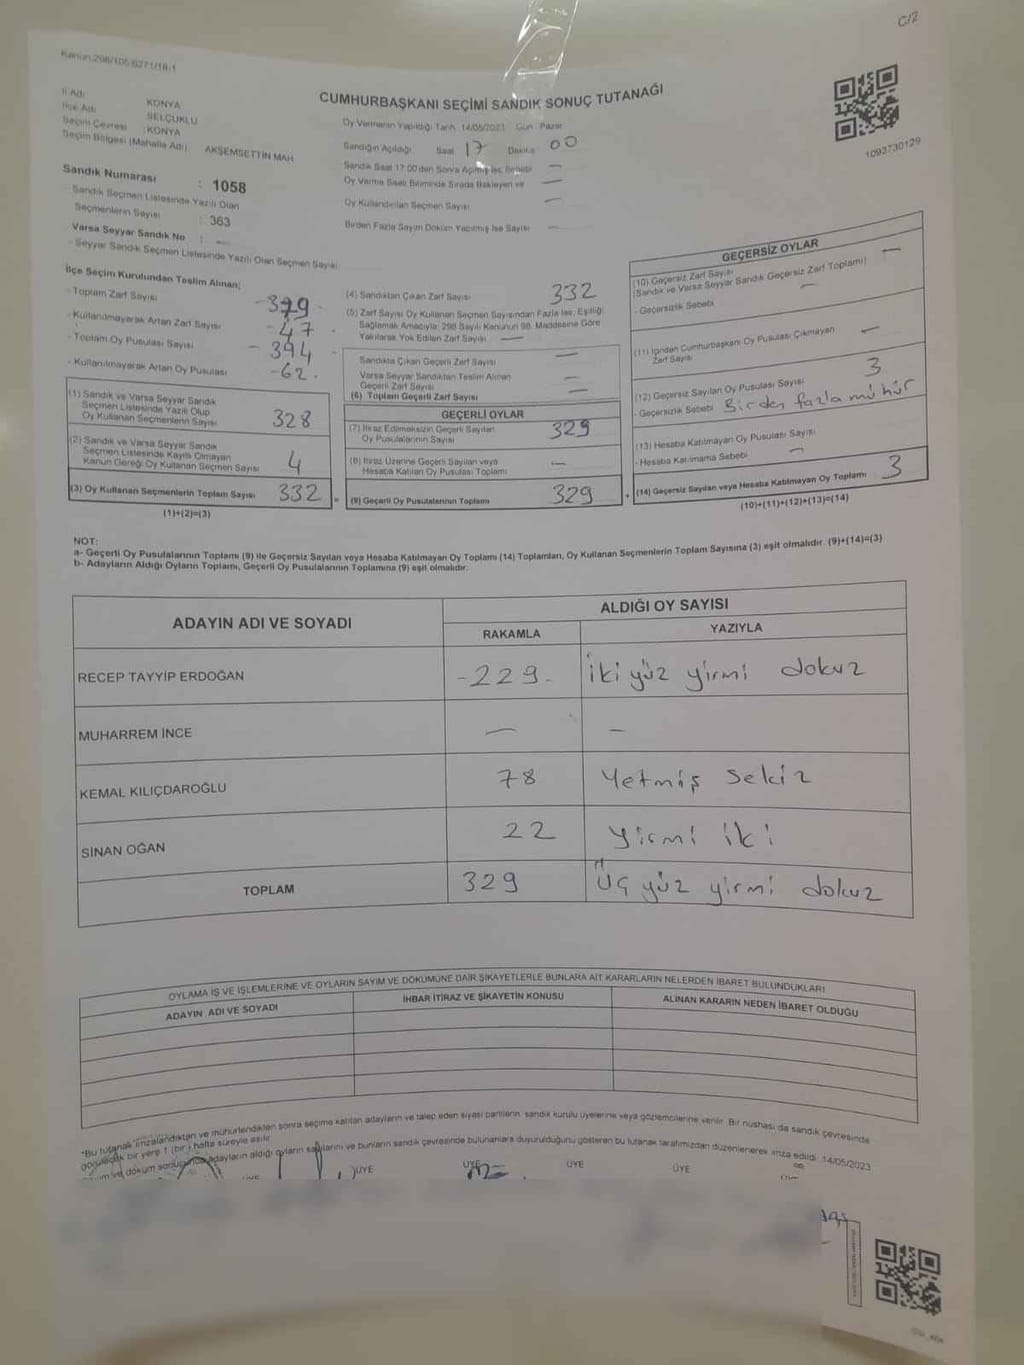 C/2
Kanun:298/105 6271/18-1
İl Adı KONYA
İlçe Adı SELÇUKLU
Seçim Çevresi : KONYA
Seçim Bölgesi (Mahalle Adı) AKŞEMSETTİN MAH
CUMHURBAŞKANI SEÇİMİ SANDIK SONUÇ TUTANAĞI
Oy Vermenin Yapıldığı Tarih 14/05/2023 Gün Pazar
Sandığın Açıldığı Saat 17 Dakika 00
Sandık Saat 17:00'den Sonra Açılmış İse, Sebebi —
Oy Verme Saati Bitiminde Sırada Bekleyen ve —
Oy Kullandırılan Seçmen Sayısı —
Birden Fazla Sayım Döküm Yapılmış İse Sayısı —
1093730129
Sandık Numarası : 1058
- Sandık Seçmen Listesinde Yazılı Olan
Seçmenlerin Sayısı : 363
Varsa Seyyar Sandık No : —
- Seyyar Sandık Seçmen Listesinde Yazılı Olan Seçmen Sayısı:
İlçe Seçim Kurulundan Teslim Alınan;
- Toplam Zarf Sayısı -379
- Kullanılmayarak Artan Zarf Sayısı -47 -
- Toplam Oy Pusulası Sayısı - 394
- Kullanılmayarak Artan Oy Pusulası -62 -
(1) Sandık ve Varsa Seyyar Sandık
Seçmen Listesinde Yazılı Olup
Oy Kullanan Seçmenlerin Sayısı 328
(2) Sandık ve Varsa Seyyar Sandık
Seçmen Listesinde Kayıtlı Olmayan
Kanun Gereği Oy Kullanan Seçmen Sayısı 4
(3) Oy Kullanan Seçmenlerin Toplam Sayısı 332 =
(1)+(2)=(3)
(4) Sandıktan Çıkan Zarf Sayısı 332
(5) Zarf Sayısı Oy Kullanan Seçmen Sayısından Fazla İse, Eşitliği
Sağlamak Amacıyla, 298 Sayılı Kanunun 98. Maddesine Göre
Yakılarak Yok Edilen Zarf Sayısı —
Sandıkta Çıkan Geçerli Zarf Sayısı —
Varsa Seyyar Sandıktan Teslim Alınan
Geçerli Zarf Sayısı —
(6) Toplam Geçerli Zarf Sayısı —
GEÇERLİ OYLAR
(7) İtiraz Edilmeksizin Geçerli Sayılan
Oy Pusulalarının Sayısı 329
(8) İtiraz Üzerine Geçerli Sayılan veya
Hesaba Katılan Oy Pusulası Toplamı —
(9) Geçerli Oy Pusulalarının Toplamı 329 +
GEÇERSİZ OYLAR
(10) Geçersiz Zarf Sayısı
(Sandık ve Varsa Seyyar Sandık Geçersiz Zarf Toplamı) —
- Geçersizlik Sebebi —
(11) İçinden Cumhurbaşkanı Oy Pusulası Çıkmayan
Zarf Sayısı —
(12) Geçersiz Sayılan Oy Pusulası Sayısı 3
- Geçersizlik Sebebi Birden fazla mühür
(13) Hesaba Katılmayan Oy Pusulası Sayısı
- Hesaba Katılmama Sebebi —
(14) Geçersiz Sayılan veya Hesaba Katılmayan Oy Toplamı 3
(10)+(11)+(12)+(13)=(14)
NOT:
a- Geçerli Oy Pusulalarının Toplamı (9) ile Geçersiz Sayılan veya Hesaba Katılmayan Oy Toplamı (14) Toplamları, Oy Kullanan Seçmenlerin Toplam Sayısına (3) eşit olmalıdır. (9)+(14)=(3)
b- Adayların Aldığı Oyların Toplamı, Geçerli Oy Pusulalarının Toplamına (9) eşit olmalıdır.
ADAYIN ADI VE SOYADI
ALDIĞI OY SAYISI
RAKAMLA YAZIYLA
RECEP TAYYİP ERDOĞAN -229- İki yüz yirmi dokuz
MUHARREM İNCE — —
KEMAL KILIÇDAROĞLU 78 Yetmiş sekiz
SİNAN OĞAN 22 Yirmi iki
TOPLAM 329 Üç yüz yirmi dokuz
OYLAMA İŞ VE İŞLEMLERİNE VE OYLARIN SAYIM VE DÖKÜMÜNE DAİR ŞİKAYETLERLE BUNLARA AİT KARARLARIN NELERDEN İBARET BULUNDUKLARI
ADAYIN ADI VE SOYADI İHBAR İTİRAZ VE ŞİKAYETİN KONUSU ALINAN KARARIN NEDEN İBARET OLDUĞU
"Bu tutanak imzalandıktan ve mühürlendikten sonra seçime katılan adayların ve talep eden siyasi partilerin, sandık kurulu üyelerine veya gözlemcilerine verilir. Bir nüshası da sandık çevresinde
görülecek bir yere 1 (bir) hafta süreyle asılır.
ve döküm sonucunda adayların aldığı oyların sayılarını ve bunların sandık çevresinde bulunanlara duyurulduğunu gösteren bu tutanak tarafımızdan düzenlenerek imza edildi. 14/05/2023
ÜYE ÜYE ÜYE ÜYE